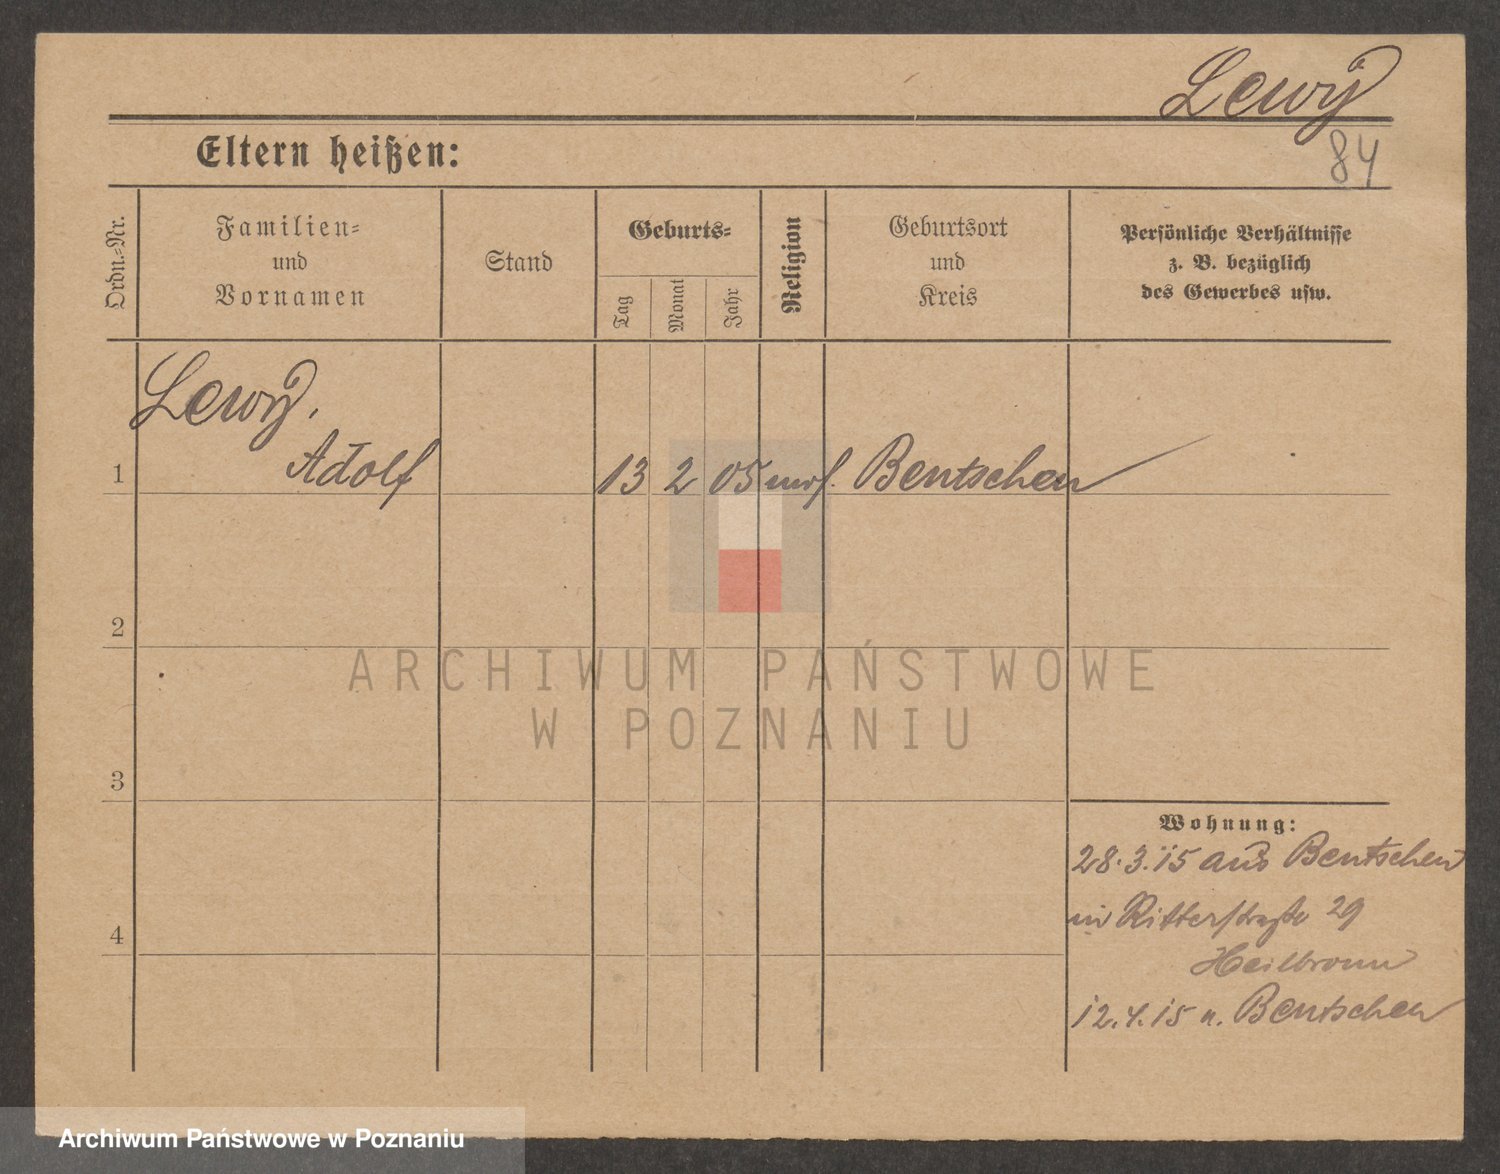 Lewÿ
84
Eltern heißen:
Ordn.-Nr.
Familien-
und
Vornamen
Stand
Geburts-
Tag
Monat
Jahr
Religion
Geburtsort
und
Kreis
Persönliche Verhältnisse
z. B. bezüglich
des Gewerbes usw.
Lewÿ,
1 Adolf 13 2 05 Bentschen
2
3
4
ARCHIWUM PAŃSTWOWE
W POZNANIU
Wohnung:
28.3.15 aus Bentschen
Ritterstraße 29
Heilbronn
12.4.15 n. Bentschen
Archiwum Państwowe w Poznaniu